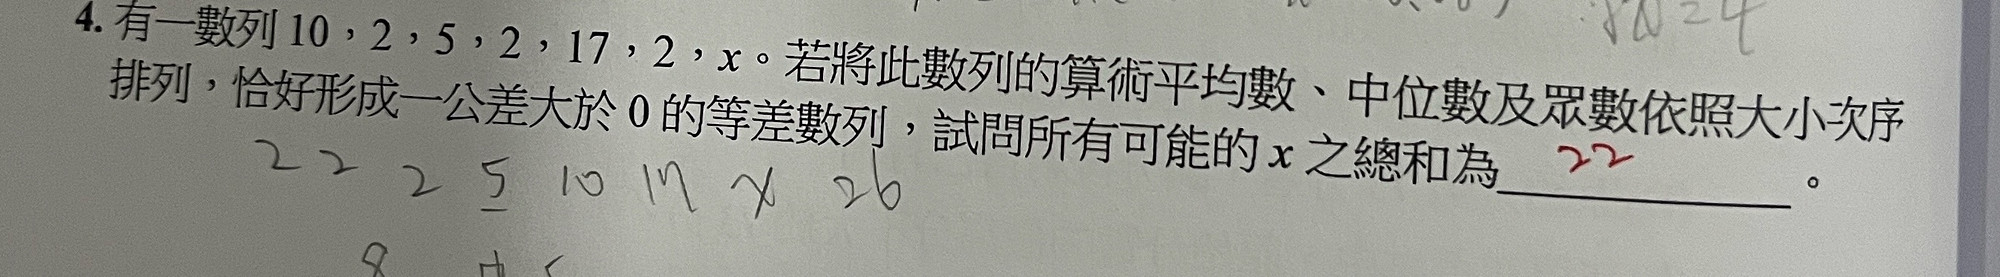 4. 有一數列 10，2，5，2，17，2，x。若將此數列的算術平均數、中位數及眾數依照大小次序
排列，恰好形成一公差大於 0 的等差數列，試問所有可能的 x 之總和為 22 。
2 2 2 5 10 17 x 26
8 中 5